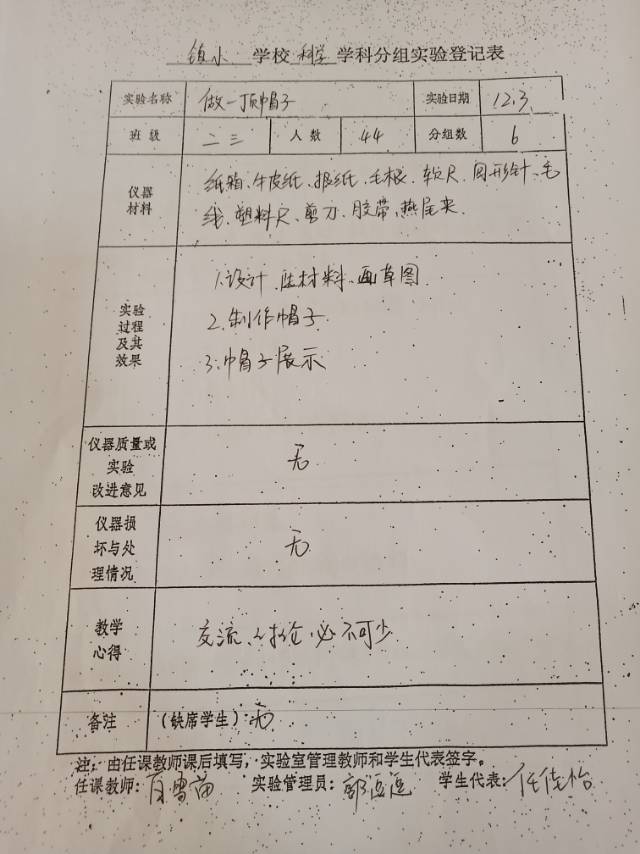 镇小 学校 科学 学科分组实验登记表
实验名称 做一顶帽子 实验日期 12.3
班级 二三 人数 44 分组数 6
仪器材料 纸箱、牛皮纸、报纸、毛根、软尺、回形针、毛
线、塑料尺、剪刀、胶带、燕尾夹.
实验过程及其效果 1.设计 选材料、画草图
2.制作帽子
3.帽子展示
仪器质量或实验改进意见 无
仪器损坏与处理情况 无
教学心得 交流、讨论,必不可少
备注 (缺席学生):无
注:由任课教师课后填写,实验室管理教师和学生代表签字。
任课教师:夏雪苗 实验管理员:郭 学生代表:任佳怡